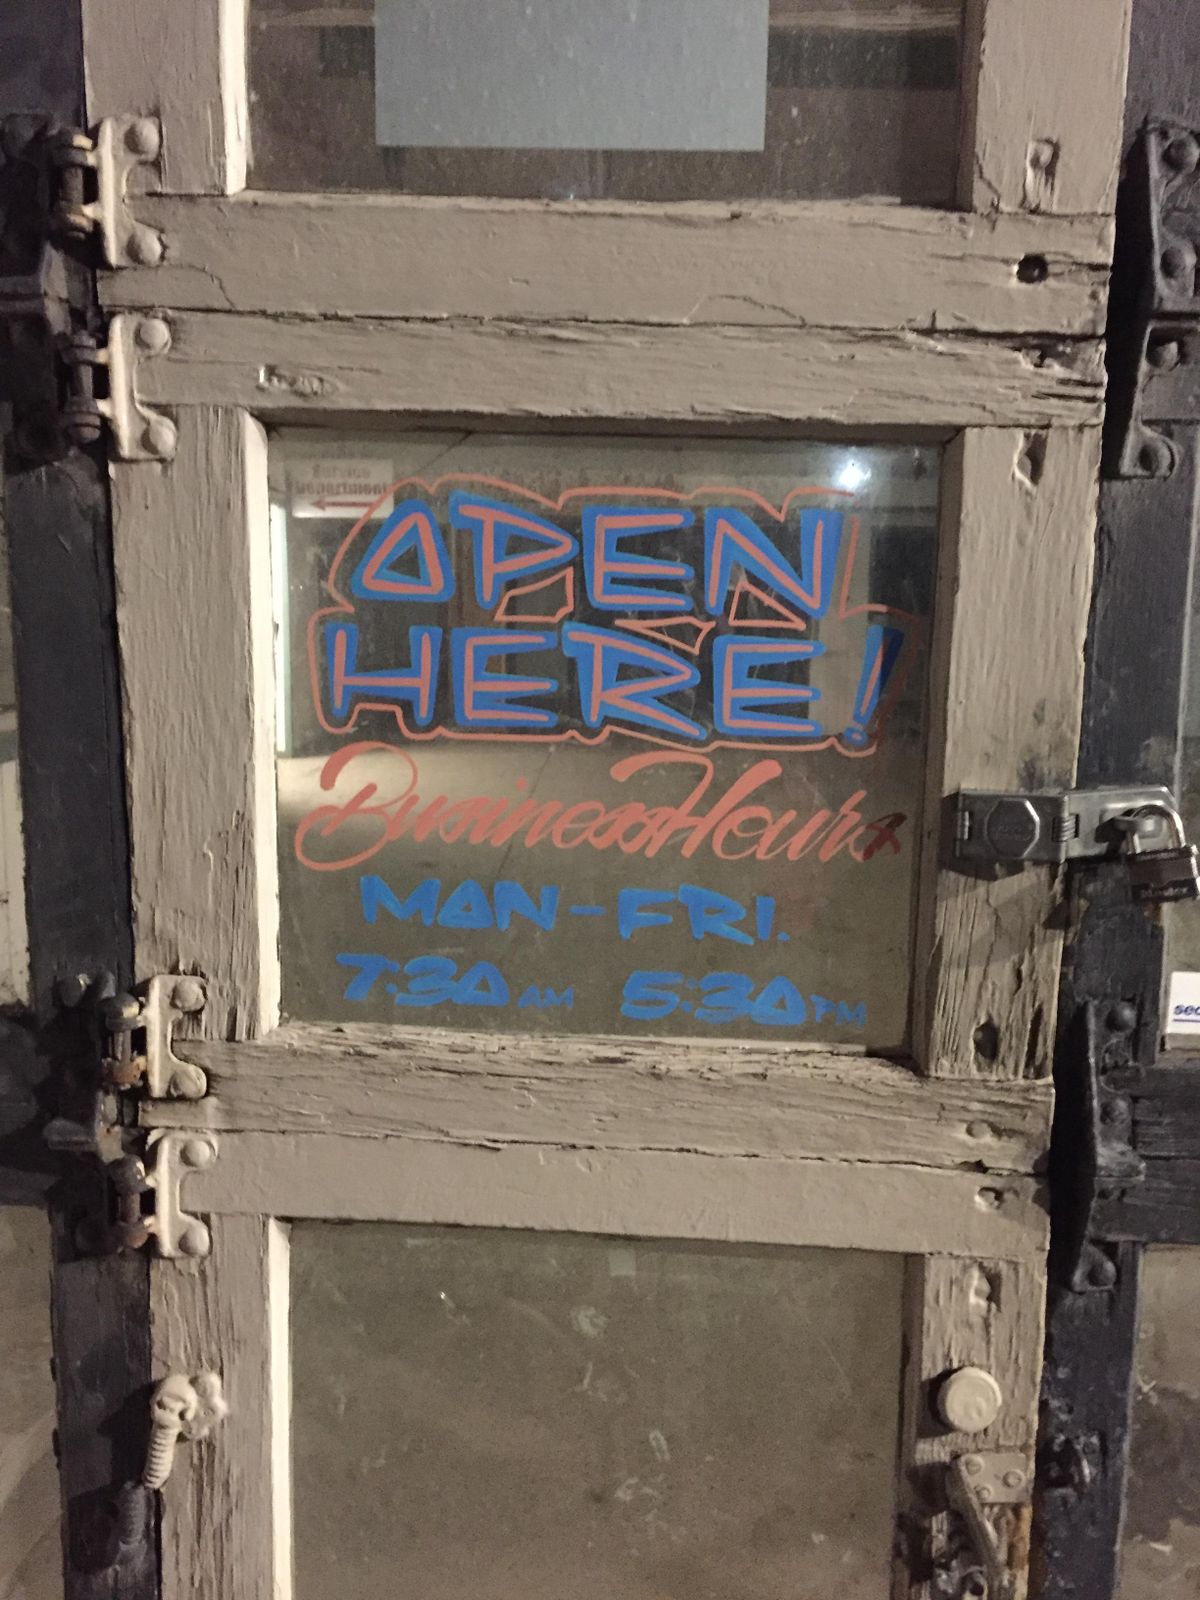 Service
Department
OPEN
HERE!
Business Hours
MON-FRI.
7:30 AM 5:30 PM